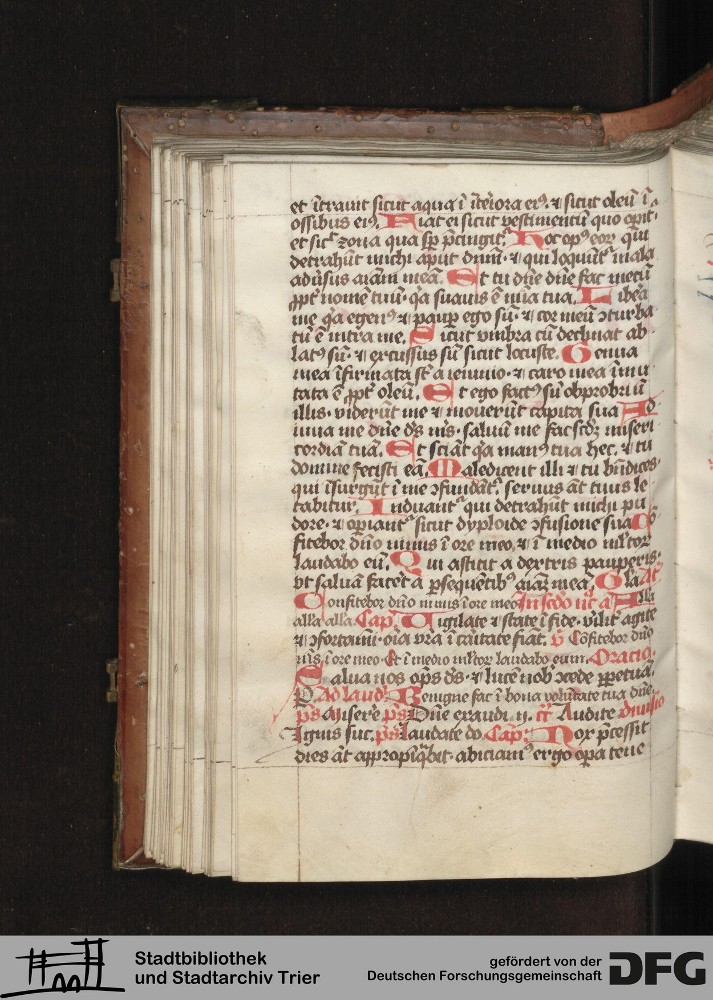 et ītravit sicut aqua ī īteriora eiꝰ. ⁊ sicut oleū ī
ossibus eiꝰ. Fiat ei sicut vestimentū quo opit᷑
et sic᷑ zona qua sp̄ p̄cingit᷑. Hoc opꝰ eoꝝ qui
detrahūt michi aput dnm̄. ⁊ qui loquūt᷑ mala
adūsus aīam meā. Et tu dn̄e dn̄e fac mecū
ꝓpt᷑ nomē tuū. q̄a suavis ē mīa tua. Libera
me q̄a egenꝰ ⁊ paup ego sū. ⁊ cor meū ꝯturba
tū ē intra me. Sicut vmbra cū declinat ab
latꝰ sū. ⁊ excussus sū sicut locuste. Genua
mea īfirmata st̄ a ieiunio. ⁊ caro mea īmu
tata ē ꝓpt᷑ oleū. Et ego factꝰ sū obprobriū
illis. viderūt me ⁊ moverūt capita sua Ad
iuua me dn̄e ds̄ mꝰs. saluū me fac scd̄ꝫ miseri
cordiā tuā. Et sciāt q̄a manꝰ tua hec. ⁊ tu
domine fecisti eā. Maledicent illi ⁊ tu bn̄dices.
qui īsurgūt ī me ꝯfundāt᷑. seruus āt tuus le
tabitur. Induant᷑ qui detrahūt michi pu
dore. ⁊ opiant᷑ sicut dyploide ꝯfusione sua Cō
fitebor dn̄o nimis ī ore meo. ⁊ ī medio ml̄toꝝ
laudabo eū. Qui astitit a dextris pauperis.
vt saluā facēt a p̄sequētibꝰ aīaꝫ meā. Gl̄a At̄
Confitebor dn̄o nimis īore meo
all̄a all̄a. Cap̄. Vigilate ⁊ state ī fide. vilit᷑ agite
⁊ ꝯfortami. oīa vr̄a ī caritate fiāt. v̄ Cōfitebor dn̄o
nīs. ī ore meo. Et ī medio ml̄toꝝ laudabo eum. Oracio.
Salua nos op̄s ds̄. ⁊ lucē nob̄ ꝯcede ꝑpetuā.
Ad laud̄. Benigne fac ī bona volūtate tua dn̄e.
p̄s Misere p̄s Dn̄e exaudi .ij. c̄t Audite divisio
Ignis suc. p̄s Laudate do. Cap̄. Nox p̄cessit
dies āt appropīq̄bit. abiciamꝰ ergo opa tene
Stadtbibliothek
und Stadtarchiv Trier
gefördert von der
Deutschen Forschungsgemeinschaft
DFG